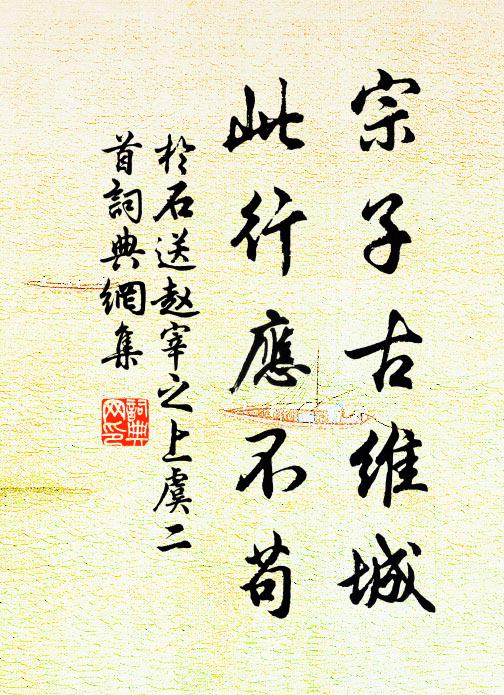 宗子古維城
此行應不苟
於石送赵宰之上虞二
首詞典網集
詞典
网印